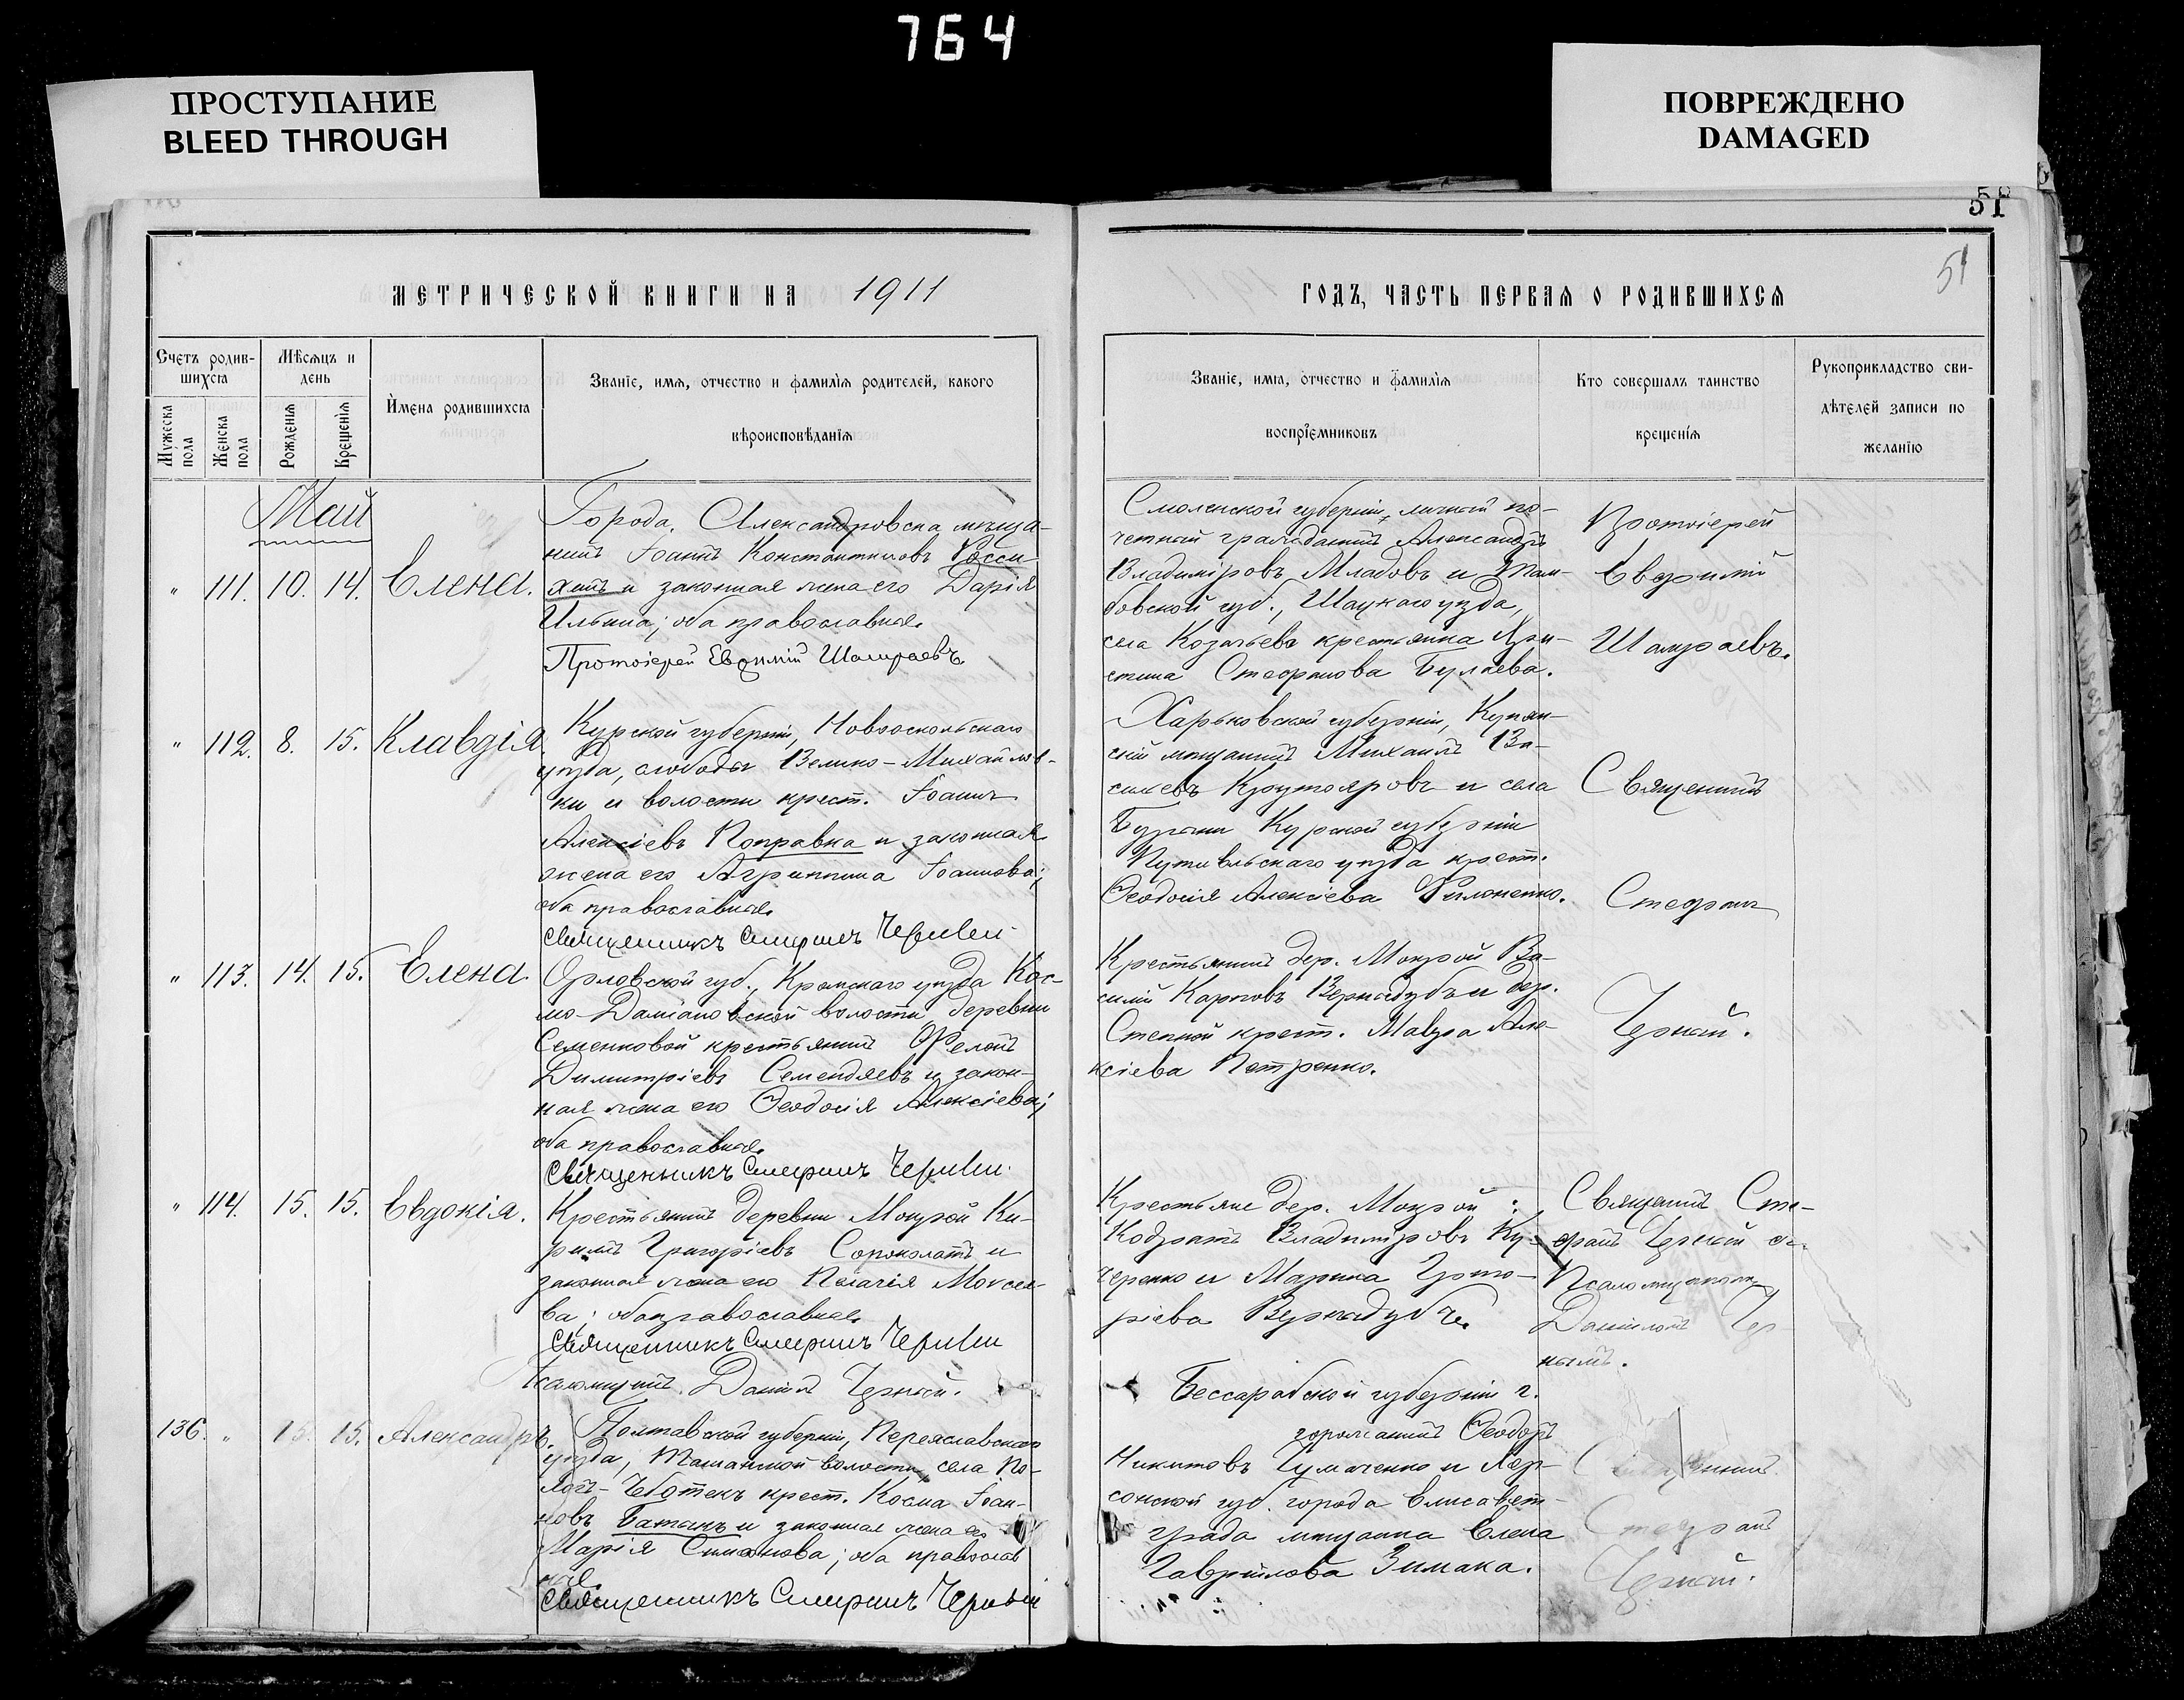 764
ПРОСТУПАНИЕ
BLEED THROUGH
ПОВРЕЖДЕНО
DAMAGED
51
51
МЕТРИЧЕСКОЙ КНИГИ НА 1911
ГОДЪ, ЧАСТЬ ПЕРВАЯ О РОДИВШИХСЯ
Счетъ родив-
шихся
Мѣсяцъ и
день
Мужеска
пола
Женска
пола
Рожденія
Крещенія
Имена родившихся
Званіе, имя, отчество и фамилія родителей, какого
вѣроисповѣданія
Званіе, имя, отчество и фамилія
воспріемниковъ
Кто совершалъ таинство
крещенія
Рукоприкладство сви-
дѣтелей записи по
желанію
Май
" 111. 10. 14. Елена.
Города Александровска мѣща-
нинъ Іоаннъ Константиновъ Росси-
хинъ и законная жена его Дарія
Ильина; оба православные.
Протоіерей Евѳимій
Смоленской губерніи, личный по-
четный гражданинъ Александръ
Владиміровъ Младовъ и Там-
бовской губ., Шацкаго уѣзда,
села Козачьева крестьянка Хри-
стина Стефанова Булаева.
Протоіерей
Евѳимій
" 112. 8. 15. Клавдія
Курской губерніи, Новооскольскаго
уѣзда, слободы Велико-Михайлов-
ки и волости крест. Іоаннъ
Алексіевъ Поправка и законная
жена его Агриппина Іоаннова;
оба православные.
Священникъ Стефанъ Черный
Харьковской губерніи, Купян-
скій мѣщанинъ Михаилъ Ва-
сильевъ Крутояровъ и села
Бурыни Курской губерніи
Путивльскаго уѣзда крест.
Ѳеодосія Алексіева Филоненко.
Священникъ
Стефанъ
Черный.
" 113. 14. 15. Елена
Орловской губ., Кромскаго уѣзда Кос-
мо-Даміановской волости, деревни
Семенковой крестьянинъ Филонъ
Димитріевъ Семендяевъ и закон-
ная жена его Ѳеодосія Алексіева;
оба православные.
Священникъ Стефанъ Черный.
Крестьянинъ дер. Мокрой Ва-
силій Карповъ Вернидубъ и дер.
Степной крест. Мавра Але-
ксіева Петренко.
" 114. 15. 15. Евдокія.
Крестьянинъ деревни Мокрой Ки-
риллъ Григоріевъ Сороколатъ и
законная жена его Пелагія Моксее-
ва; оба православные.
Священникъ Стефанъ Черный
Псаломщикъ Даніилъ Черный.
Крестьяне дер. Мокрой:
Кодратъ Владиміровъ Ку-
черенко и Марина Григо-
ріева Вернидубъ.
Священникъ Сте-
фанъ Черный съ
Псаломщикомъ
Даніиломъ Чер-
нымъ.
136. " 15. 15. Александръ.
Полтавской губерніи, Переяславскаго
уѣзда, Ташанской волости, села По-
логъ-Чеботекъ крест. Косма Іоан-
новъ Батыкъ и законная жена его
Марія Симонова; оба православ-
ные.
Священникъ Стефанъ Черный
Бессарабской губерніи г.
горожанинъ Ѳеодоръ
Никитовъ Чумаченко и Хер-
сонской губ. города Елисавет-
града мѣщанка Елена
Гавриилова Зимака.
Священникъ
Стефанъ
Черный.